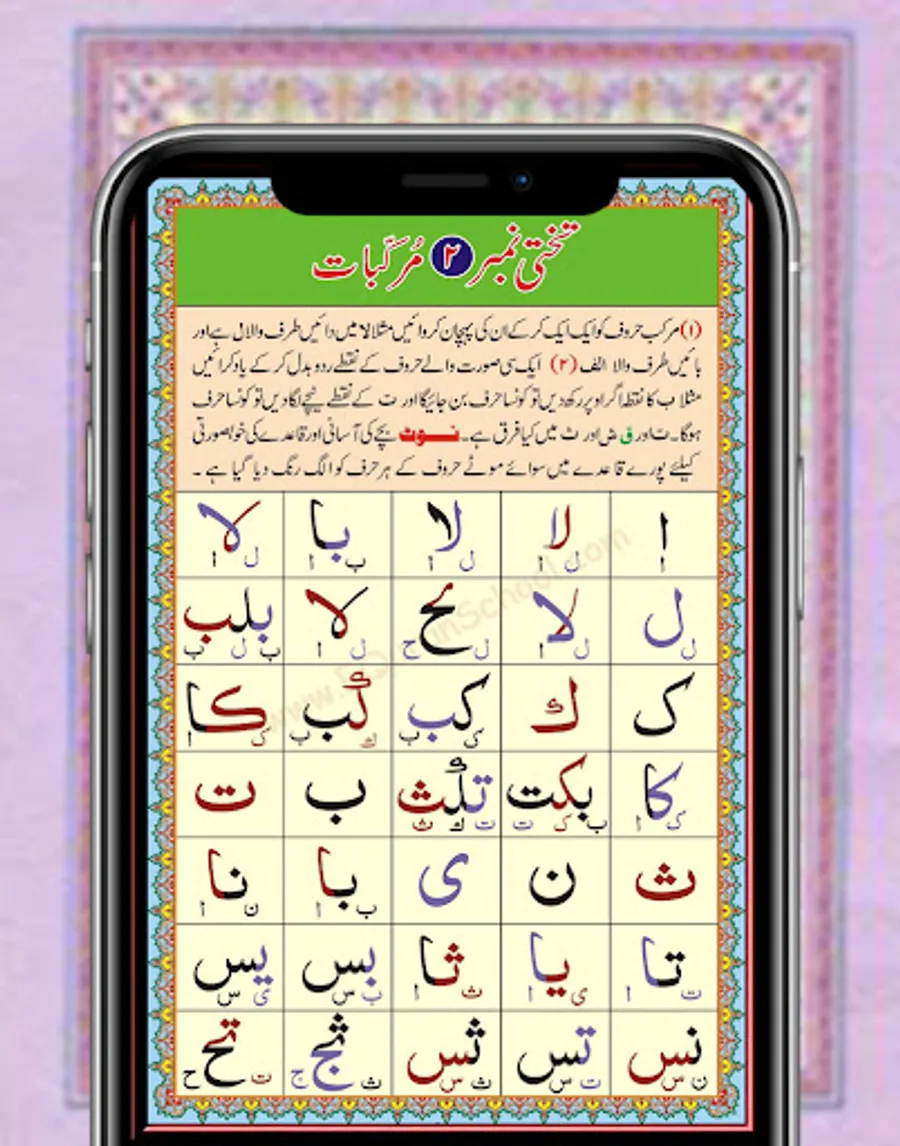 تختی نمبر ۲ مُرکّبات
(۱) مرکب حروف کو ایک ایک کر کے ان کی پہچان کروائیں مثلا لا میں دائیں طرف والا ل ہے اور
بائیں طرف والا الف (۲) ایک سی صورت والے حروف کے نقطے ردو بدل کر کے یاد کرائیں
مثلا ب کا نقطہ اگر اوپر رکھ دیں تو کونسا حرف بن جائیگا اور ت کے نقطے نیچے لگا دیں تو کونسا حرف
ہوگا۔ ت اور ق ض اور ث میں کیا فرق ہے۔ نوٹ بچے کی آسانی اور قاعدے کی خوبصورتی
کیلئے پورے قاعدے میں سوائے موٹے حروف کے ہر حرف کو الگ رنگ دیا گیا ہے۔
ا لا لا با لا
ا ل ا ل ا ب ا ل ا
ل لا لح لا بلب
ل ل ا ل ح ل ا ب ل ب
ک ك کب كب کا
ک ب ك ب ک ا
کا بکت تكث ب ت
ک ا ب ک ت ت ك ث
ث ن ی با نا
ب ا ن ا
تا یا ثا بس یس
ت ا ی ا ث ا ب س ی س
نس تس ثس ثج تح
ن س ت س ث س ث ج ت ح